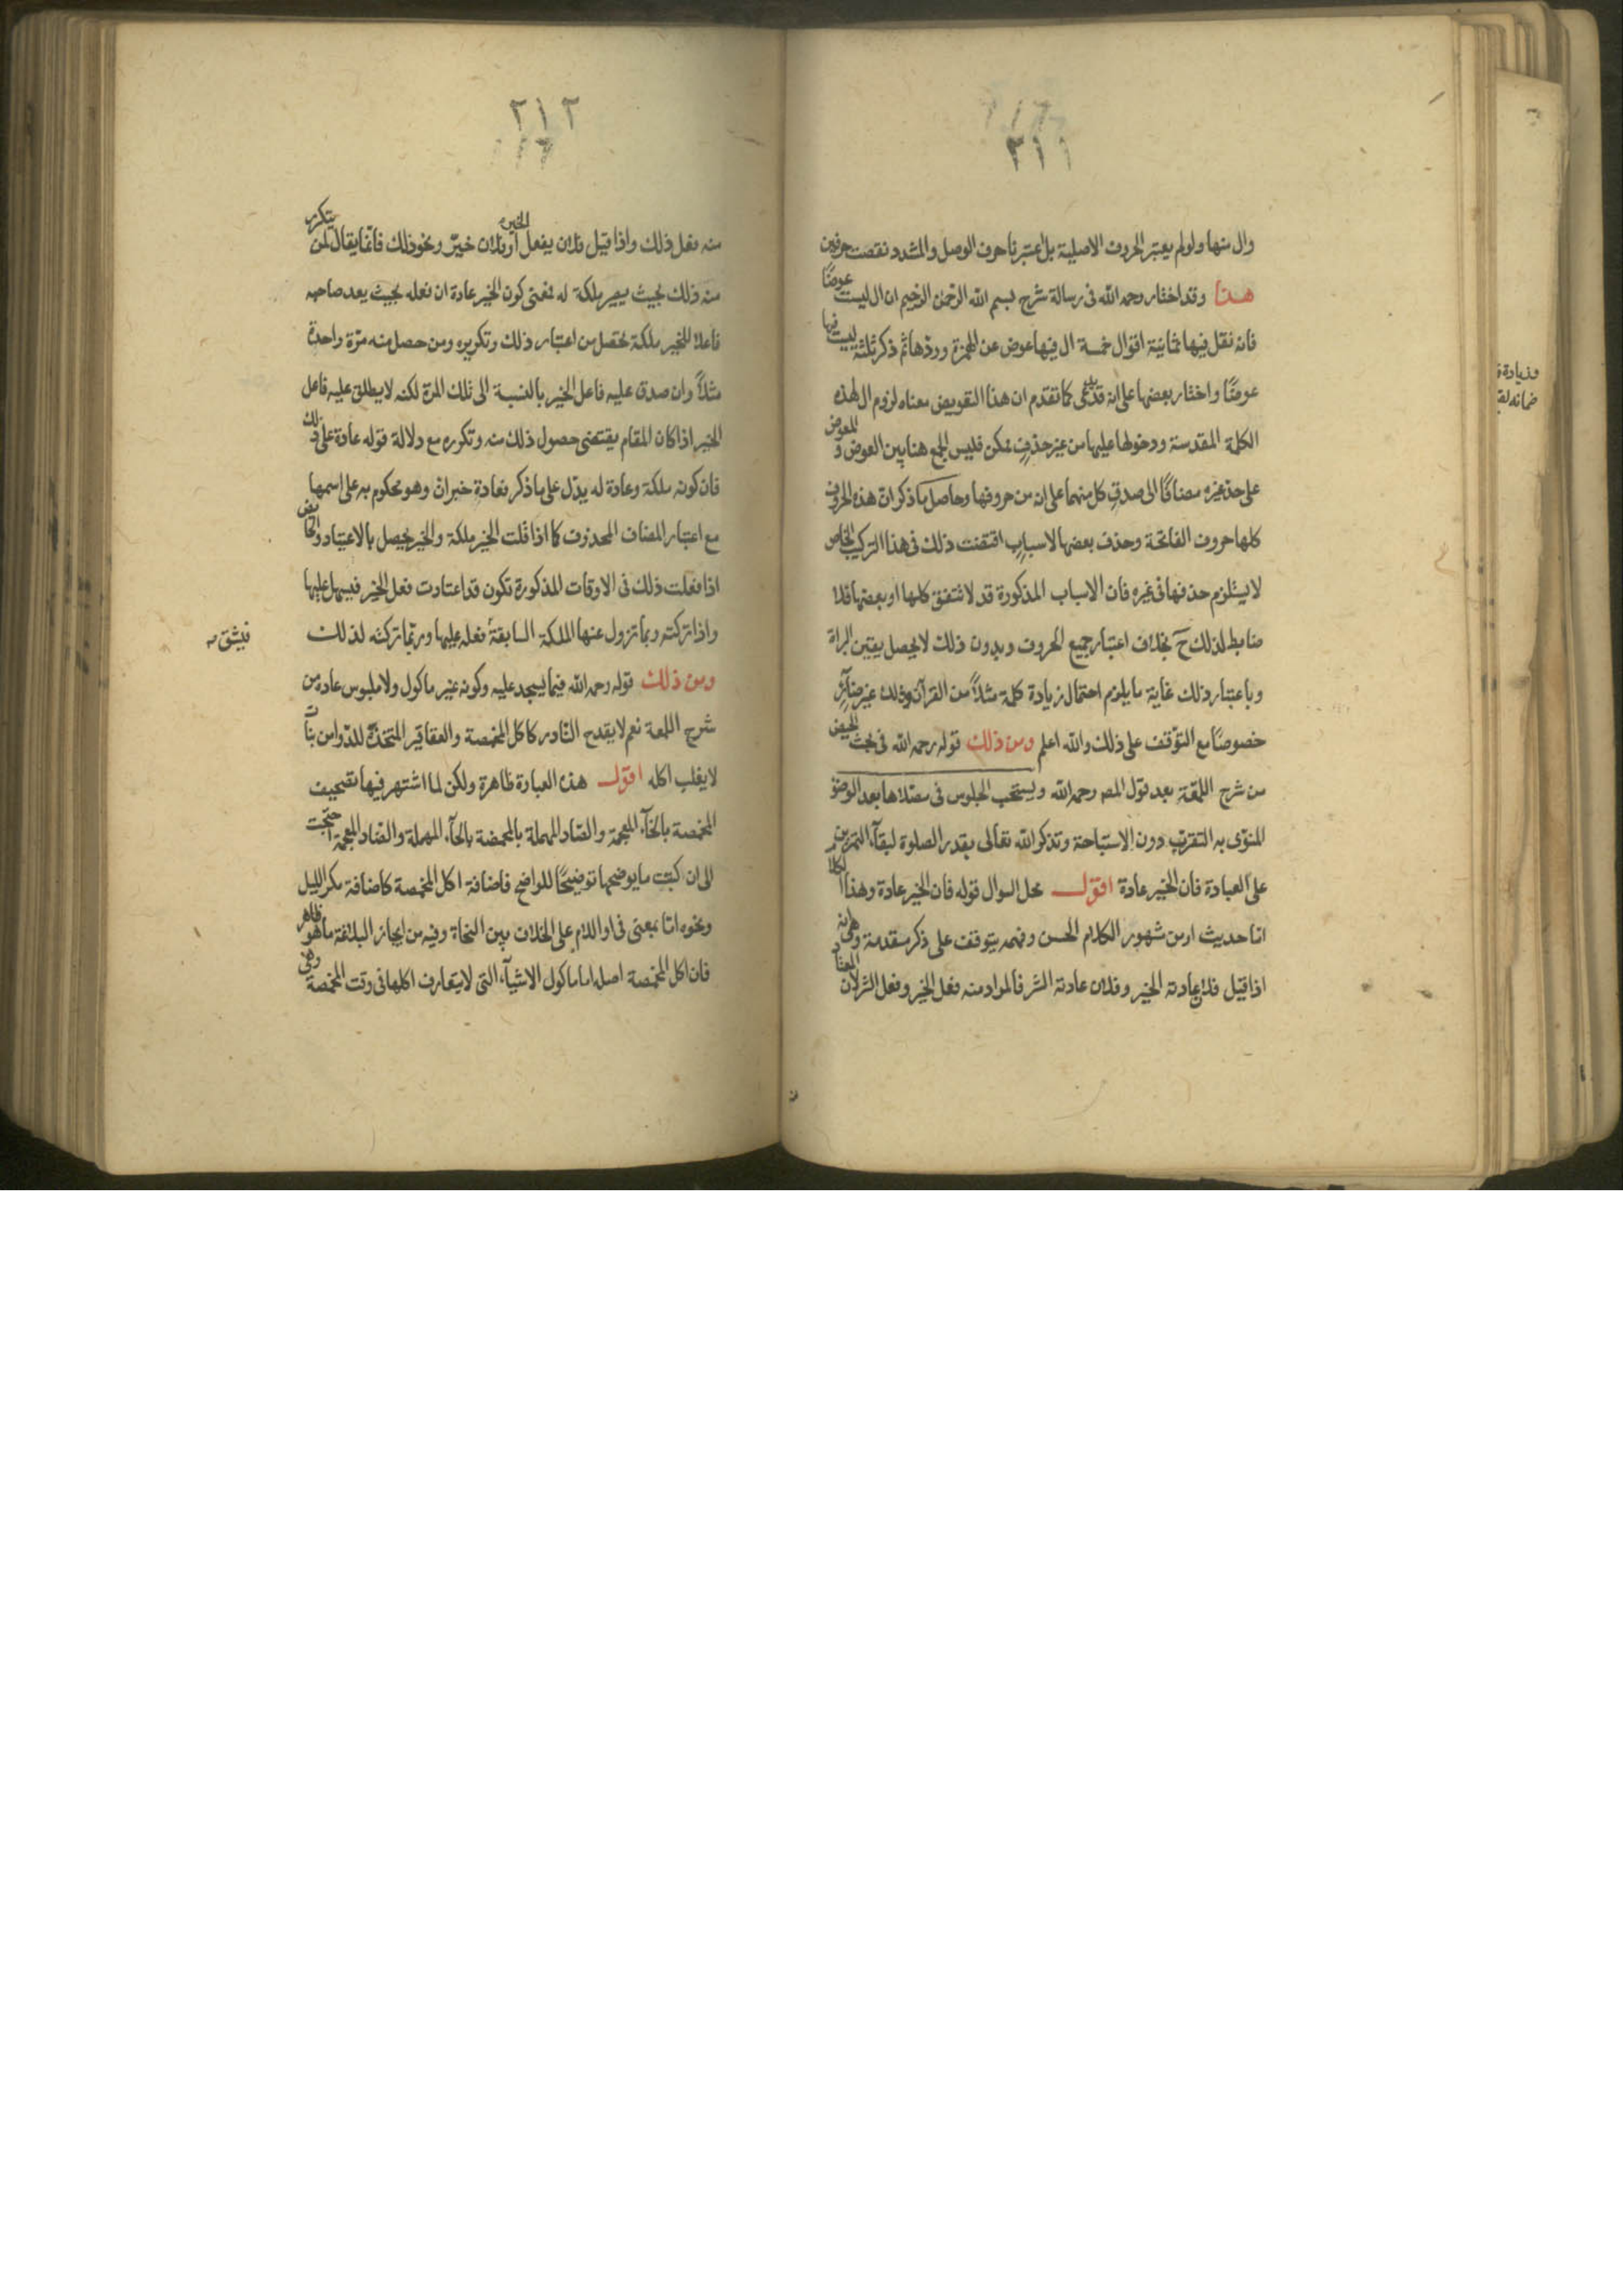 ٢١١
وال منها ولو لم يعتبر الحروف الاصلية بل اعتبرنا حرف الوصل والمشدد نقصت حرفين
هذا وقد اختار رحمه الله فى رسالة شرح بسم الله الرحمن الرحيم ان ال ليست عوضا
فانه نقل فيها ثمانية اقوال خمسة ال فيها عوض عن الهمزة وردها ثم ذكر ثلثة ليست فيها
عوضًا واختار بعضها على انه قد يدعى كما تقدم ان هذا التعويض معناه لزوم ال لهذه
الكلمة المقدسة ودخولها عليها من غير حذف ممكن فليس الجمع هنا بين العوض و المعوض
على حد غيره مضافًا الى صدق كل منهما على انه من حروفها وحاصل ما ذكر ان هذه الحروف
كلها حروف الفاتحة وحذف بعضها لاسباب اقتضت ذلك فى هذا التركيب الخاص
لا يستلزم حذفها فى غيره فان الاسباب المذكورة قد لا تتفق كلها او بعضها فلا
ضابط لذلك ح بخلاف اعتبار جميع الحروف وبدون ذلك لا يحصل يقين البراة
وباعتبار ذلك غاية ما يلزم احتمال زيادة كلمة مثلاً من القرآن وذلك غير ضائر
خصوصًا مع التوقف على ذلك والله اعلم ومن ذلك قوله رحمه الله فى بحث الحيض
من شرح اللمعة بعد قول المصر رحمه الله ويستحب الجلوس فى مصلاها بعد الوضؤ
المنوى به التقرب دون الاستباحة وتذكر الله تعالى بقدر الصلوة لبقآء التمرين
على العبادة فان الخير عادة اقول محل السوال قوله فان الخير عادة وهذا الكلام
اما حديث او من شهور الكلام الحسن وفهمه يتوقف على ذكر مقدمة وهى انه
اذا قيل فلان عادته الخير وفلان عادته الشر فالمراد منه فعل الخير وفعل الشر لان المعتاد
٢١٢
منه فعل ذلك واذا قيل فلان يفعل الخير او فلان خيّر ونحو ذلك فانما يقال لمن يتكرر
منه ذلك بحيث يصير ملكة له فمعنى كون الخير عادة ان فعله بحيث يعد صاحبه
فاعلا للخير ملكة تحصل من اعتبار ذلك وتكريره ومن حصل منه مرّة واحدة
مثلاً وان صدق عليه فاعل الخير بالنسبة الى تلك المرة لكنه لا يطلق عليه فاعل
الخير اذا كان المقام يقتضى حصول ذلك منه وتكرره مع دلالة قوله عادة على ذلك
فان كونه ملكة وعادة له يدّل على ما ذكر فعادة خبر ان وهو محكوم به على اسمها
مع اعتبار المضاف المحذوف كما اذا قلت الخير ملكة والخير يحصل بالاعتياد والحائض
اذا فعلت ذلك فى الاوقات المذكورة تكون قد اعتادت فعل الخير فيسهل عليها
واذا تركته ربما تزول عنها الملكة السابقة فعله عليها وربّما تركته لذلك
فيشق
ومن ذلك قوله رحمه الله فيما يسجد عليه وكونه غير ماكول ولا ملبوس عادة من
شرح اللمعة نعم لا يقدح النادر كاكل المخمصة والعقاقير المتخذة للدوا من نبات
لا يغلب اكله اقول هذه العبارة ظاهرة ولكن لما اشتهر فيها تصحيف
المخمصة بالخآء المعجمة والصاد المهملة بالمحمضة بالحآء المهملة والضاد المعجمة احتجت
الى ان كتبت ما يوضحها توضيحًا للواضح فاضافة اكل المخمصة كاضافة مكر الليل
ونحوه امّا بمعنى فى او اللام على الخلاف بين النحاة وفيه من ايجاز البلاغة ما هو ظاهر
فان اكل المخمصة اصله اما ماكول الاشيآء التى لا يتعارف اكلها فى وقت المخمصة وهى